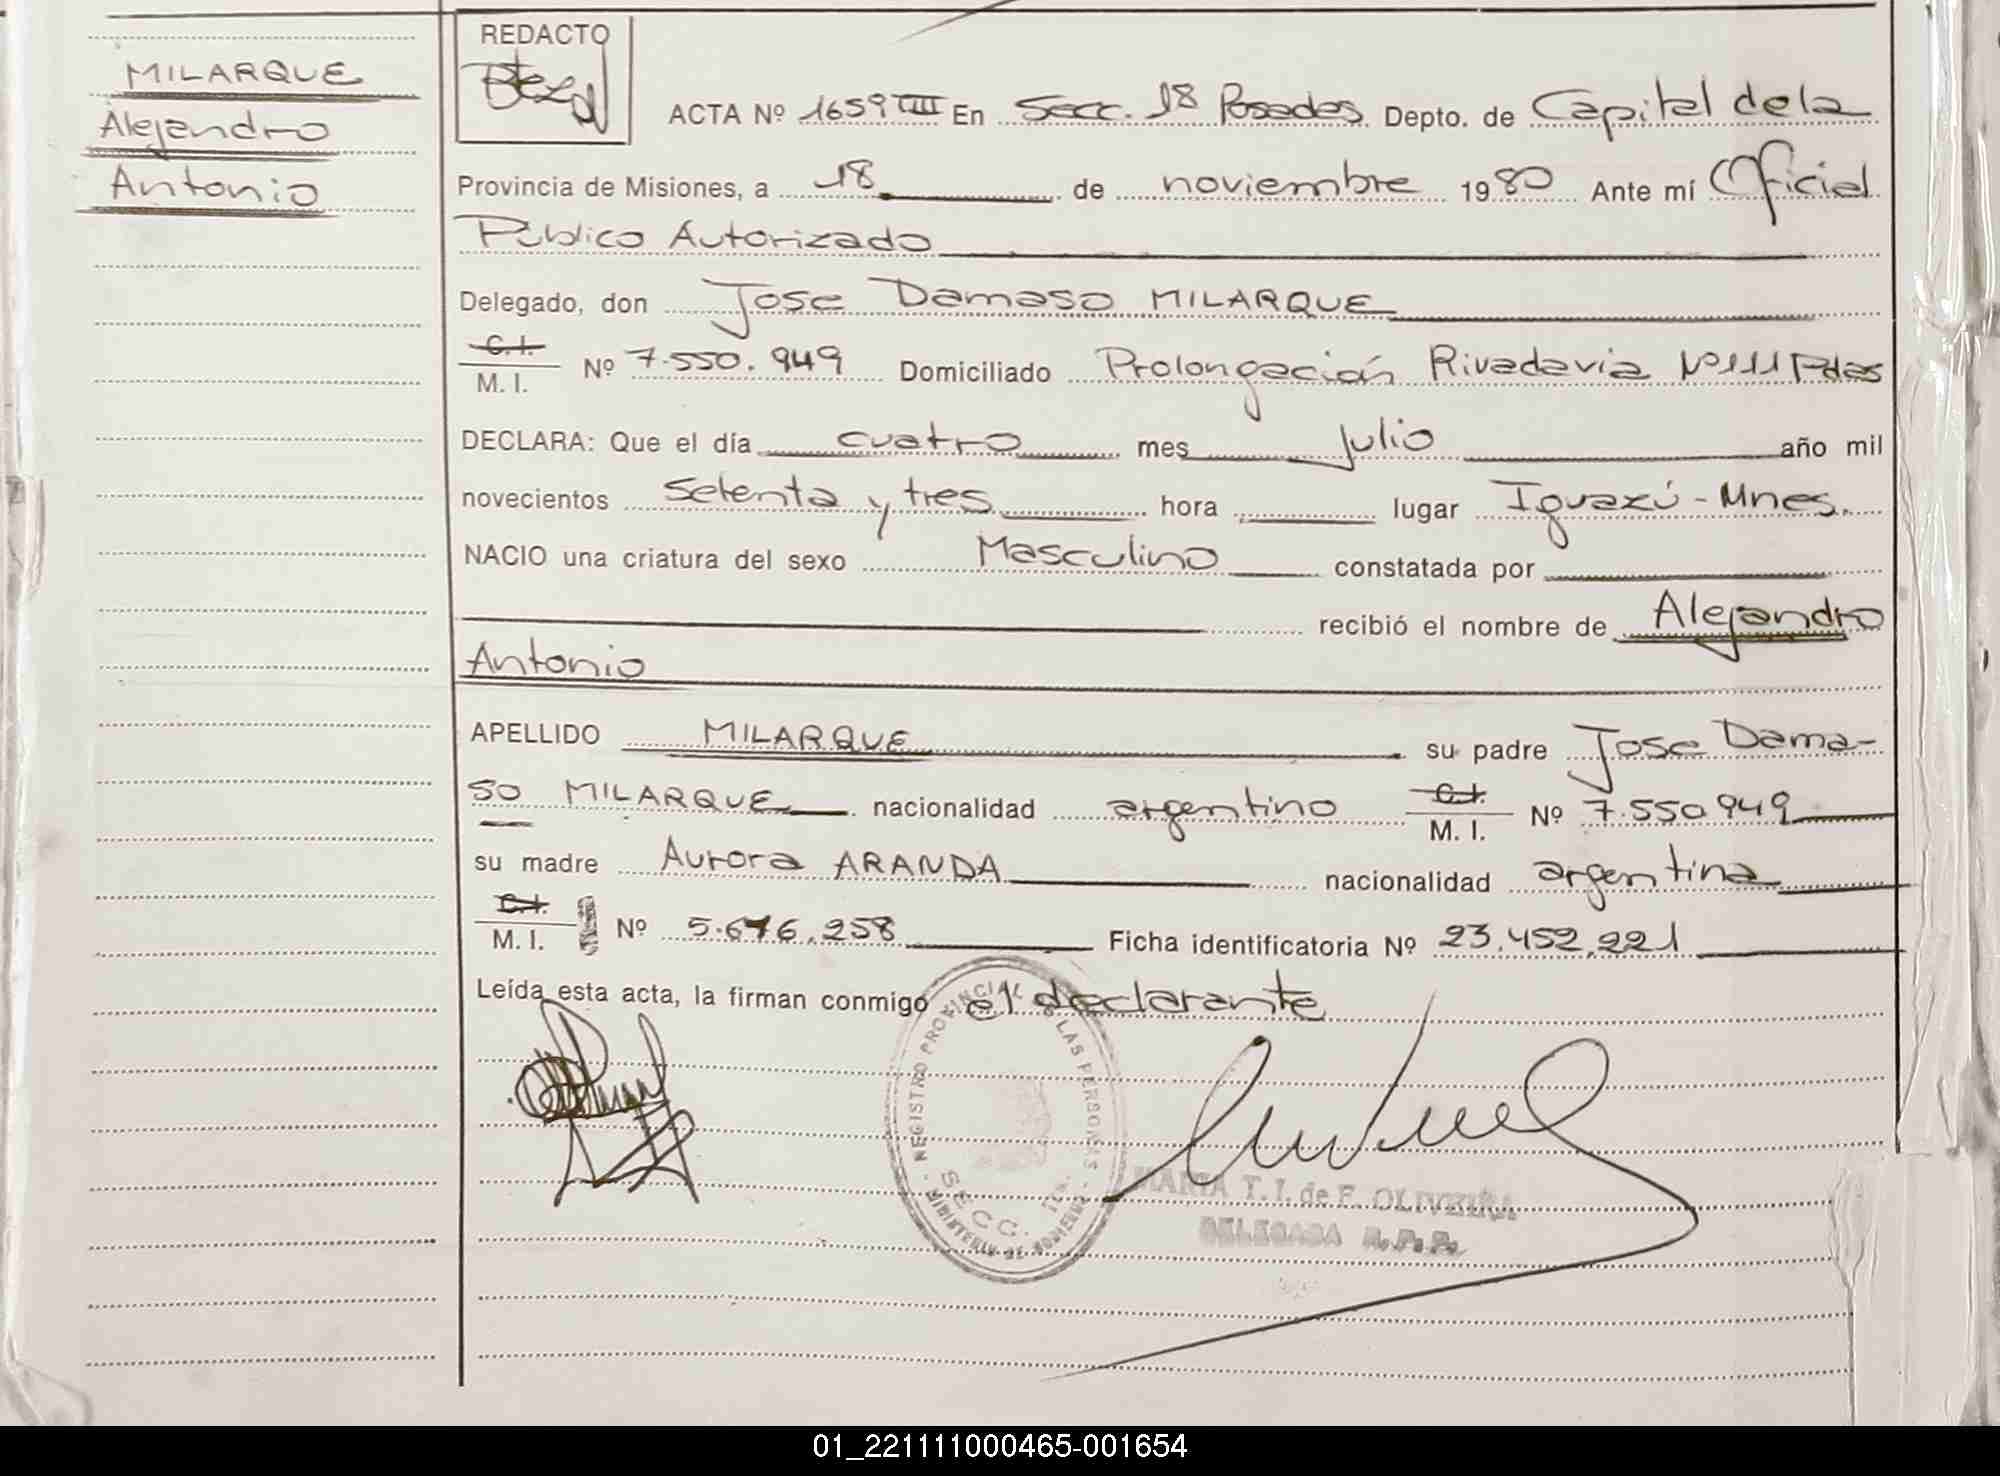 MILARQUE
Alejandro
Antonio
REDACTO
ACTA Nº 1659 VIII En Secc. 1ª Posadas Depto. de Capital de la
Provincia de Misiones, a 18 de noviembre 1980 Ante mí Oficial
Público Autorizado
Delegado, don Jose Damaso MILARQUE
C.I.
M. I. Nº 7.550.949 Domiciliado Prolongación Rivadavia Nº 111 Pdas
DECLARA: Que el día cuatro mes julio año mil
novecientos setenta y tres hora lugar Iguazú - Mnes.
NACIO una criatura del sexo Masculino constatada por
recibió el nombre de Alejandro
Antonio
APELLIDO MILARQUE su padre Jose Dama-
so MILARQUE nacionalidad argentino C.I. M. I. Nº 7.550.949
su madre Aurora ARANDA nacionalidad argentina
C.I.
M. I. Nº 5.676.258 Ficha identificatoria Nº 23.452.221
Leída esta acta, la firman conmigo el declarante
REGISTRO PROVINCIAL DE LAS PERSONAS - MINISTERIO DE GOBIERNO -
SECC. 1ra.
MARIA T. I. de F. OLIVEIRA
DELEGADA R.P.P.
01_221111000465-001654